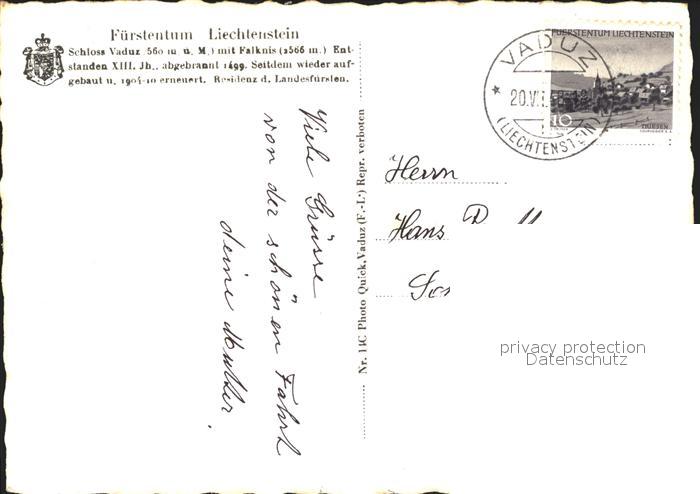 Fürstentum Liechtenstein
Schloss Vaduz (560 m ü. M.) mit Falknis (2566 m.) Ent-
standen XIII. Jh., abgebrannt 1499. Seitdem wieder auf-
gebaut u. 1904-10 erneuert. Residenz d. Landesfürsten.
Viele Grüsse
von der schönen Fahrt
deine Mutter.
Nr. 14C Photo Quick, Vaduz (F.-L.) Repr. verboten
FUERSTENTUM LIECHTENSTEIN
10
TRIESEN
VADUZ
20.VI.
(LIECHTENSTEIN)
Herrn
Hans D
privacy protection
Datenschutz